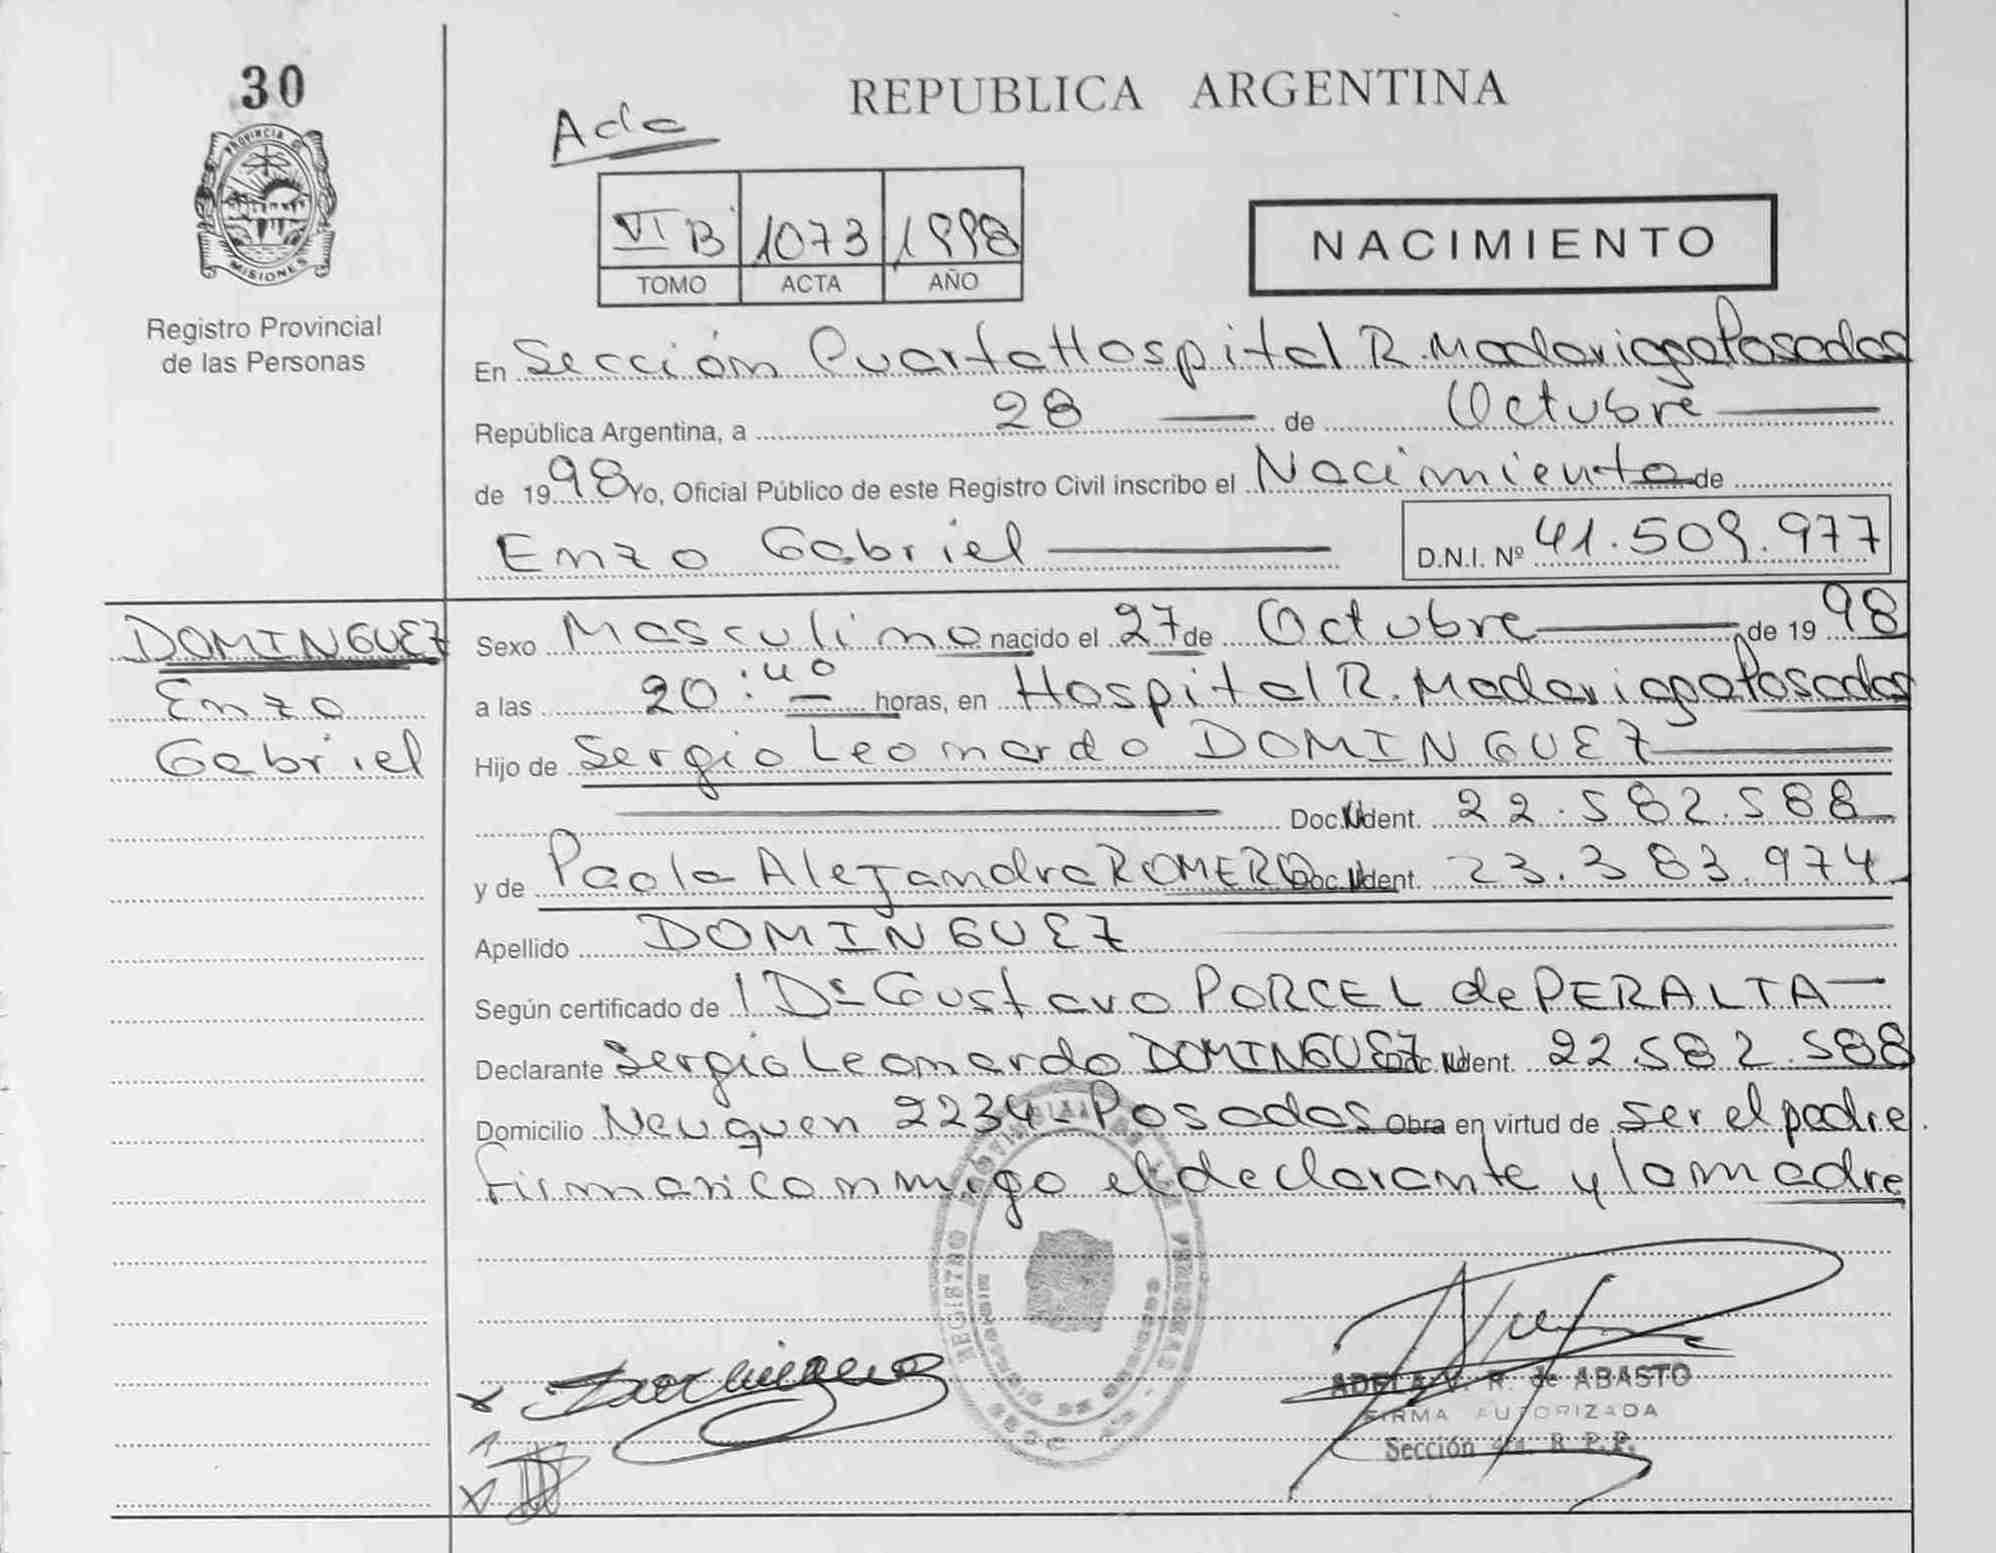 30
PROVINCIA DE
MISIONES
Registro Provincial
de las Personas
REPUBLICA ARGENTINA
VI B 1073 1998
TOMO ACTA AÑO
NACIMIENTO
En Sección Cuarta Hospital R. Madariaga Posadas
República Argentina, a 28 de Octubre
de 1998 Yo, Oficial Público de este Registro Civil inscribo el Nacimiento de
Enzo Gabriel D.N.I. Nº 41.509.977
DOMINGUEZ
Enzo
Gabriel
Sexo Masculino nacido el 27 de Octubre de 1998
a las 20:40 horas, en Hospital R. Madariaga Posadas
Hijo de Sergio Leonardo DOMINGUEZ
Doc. Ident. 22.582.588
y de Paola Alejandra ROMERO Doc. Ident. 23.383.974
Apellido DOMINGUEZ
Según certificado de Dr Gustavo PORCEL de PERALTA
Declarante Sergio Leonardo DOMINGUEZ Doc. Ident. 22.582.588
Domicilio Neuquen 2234 - Posadas Obra en virtud de ser el padre.
Firman conmigo el declarante y la madre
REGISTRO PROVINCIAL DE LAS PERSONAS
ADELA V. R. de ABASTO
FIRMA AUTORIZADA
Sección 4ta. R.P.P.